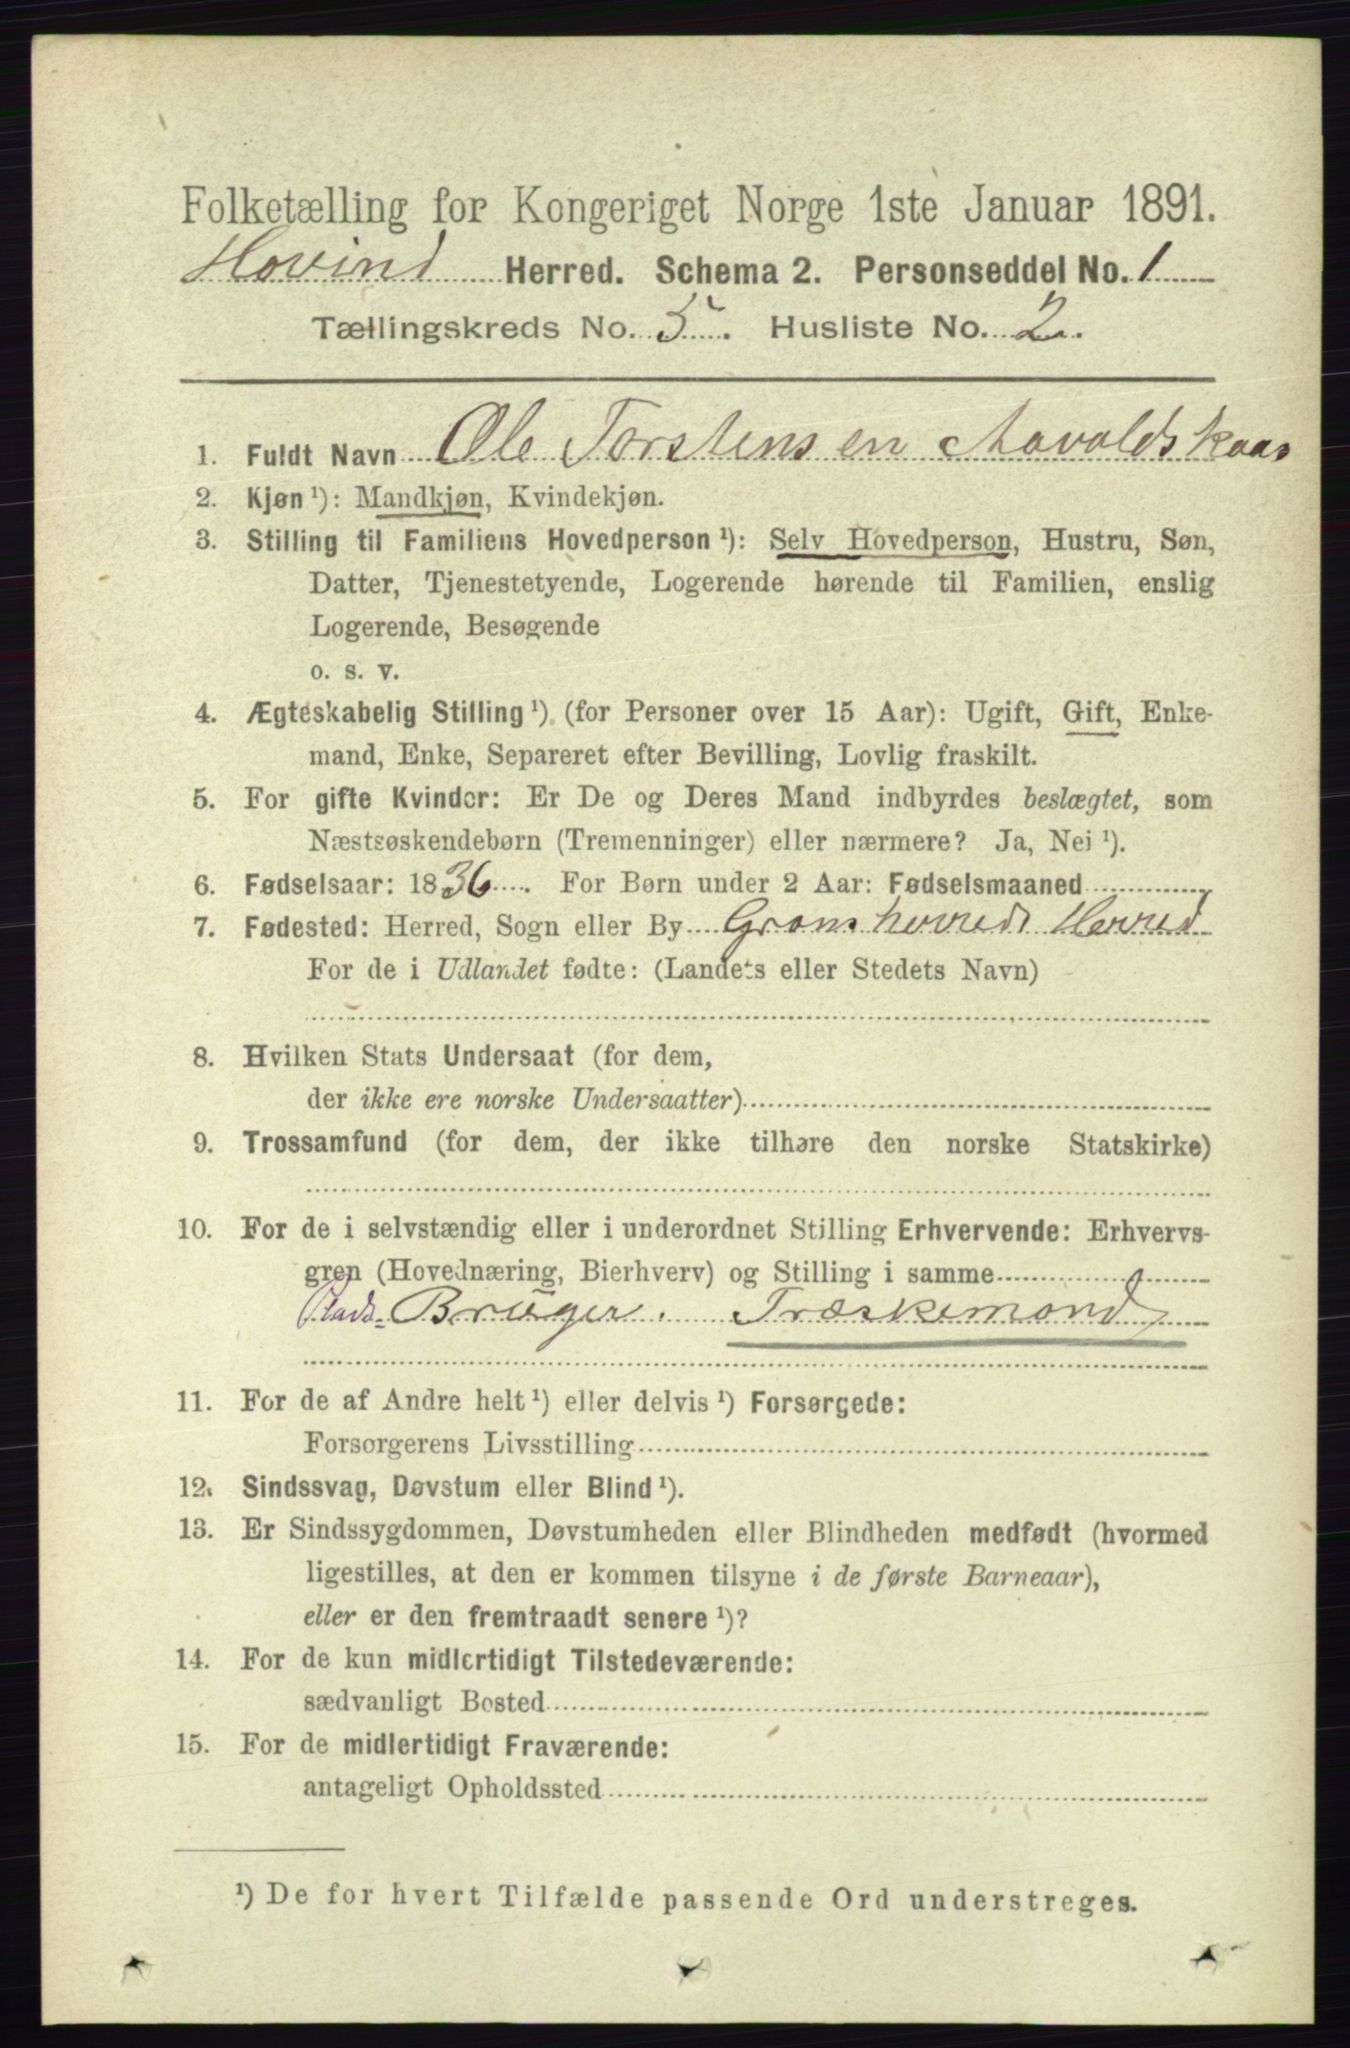 Folketælling for Kongeriget Norge 1ste Januar 1891.
Hovind Herred. Schema 2. Personseddel No. 1
Tællingskreds No. 5. Husliste No. 2.
1. Fuldt Navn Ole Torstensen
2. Kjøn ¹): Mandkjøn, Kvindekjøn.
3. Stilling til Familiens Hovedperson ¹): Selv Hovedperson, Hustru, Søn,
Datter, Tjenestetyende, Logerende hørende til Familien, enslig
Logerende, Besøgende
o. s. v.
4. Ægteskabelig Stilling ¹) (for Personer over 15 Aar): Ugift, Gift, Enke-
mand, Enke, Separeret efter Bevilling, Lovlig fraskilt.
5. For gifte Kvinder: Er De og Deres Mand indbyrdes beslægtet, som
Næstsøskendebørn (Tremenninger) eller nærmere? Ja, Nei ¹).
6. Fødselsaar: 1836. For Børn under 2 Aar: Fødselsmaaned
7. Fødested: Herred, Sogn eller By Gransherreds Herred
For de i Udlandet fødte: (Landets eller Stedets Navn)
8. Hvilken Stats Undersaat (for dem,
der ikke ere norske Undersaatter)
9. Trossamfund (for dem, der ikke tilhøre den norske Statskirke)
10. For de i selvstændig eller i underordnet Stilling Erhvervende: Erhvervs-
gren (Hovednæring, Bierhverv) og Stilling i samme
Plads- Bruger. Træskemand
11. For de af Andre helt ¹) eller delvis ¹) Forsørgede:
Forsorgerens Livsstilling
12. Sindssvag, Døvstum eller Blind ¹).
13. Er Sindssygdommen, Døvstumheden eller Blindheden medfødt (hvormed
ligestilles, at den er kommen tilsyne i de første Barneaar),
eller er den fremtraadt senere ¹)?
14. For de kun midlertidigt Tilstedeværende:
sædvanligt Bosted
15. For de midlertidigt Fraværende:
antageligt Opholdssted
¹) De for hvert Tilfælde passende Ord understreges.